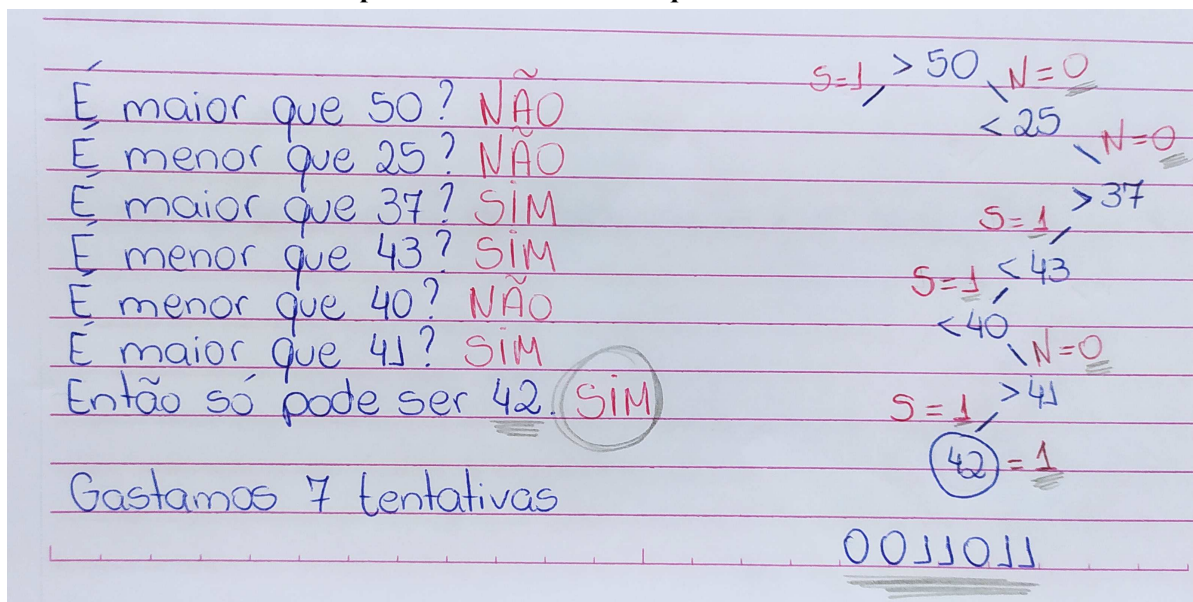 É maior que 50? NÃO
É menor que 25? NÃO
É maior que 37? SIM
É menor que 43? SIM
É menor que 40? NÃO
É maior que 41? SIM
Então só pode ser 42. SIM
Gastamos 7 tentativas
S=1 > 50 N=0
< 25 N=0
S=1 > 37
S=1 < 43
< 40 N=0
S=1 > 41
42 = 1
0011011